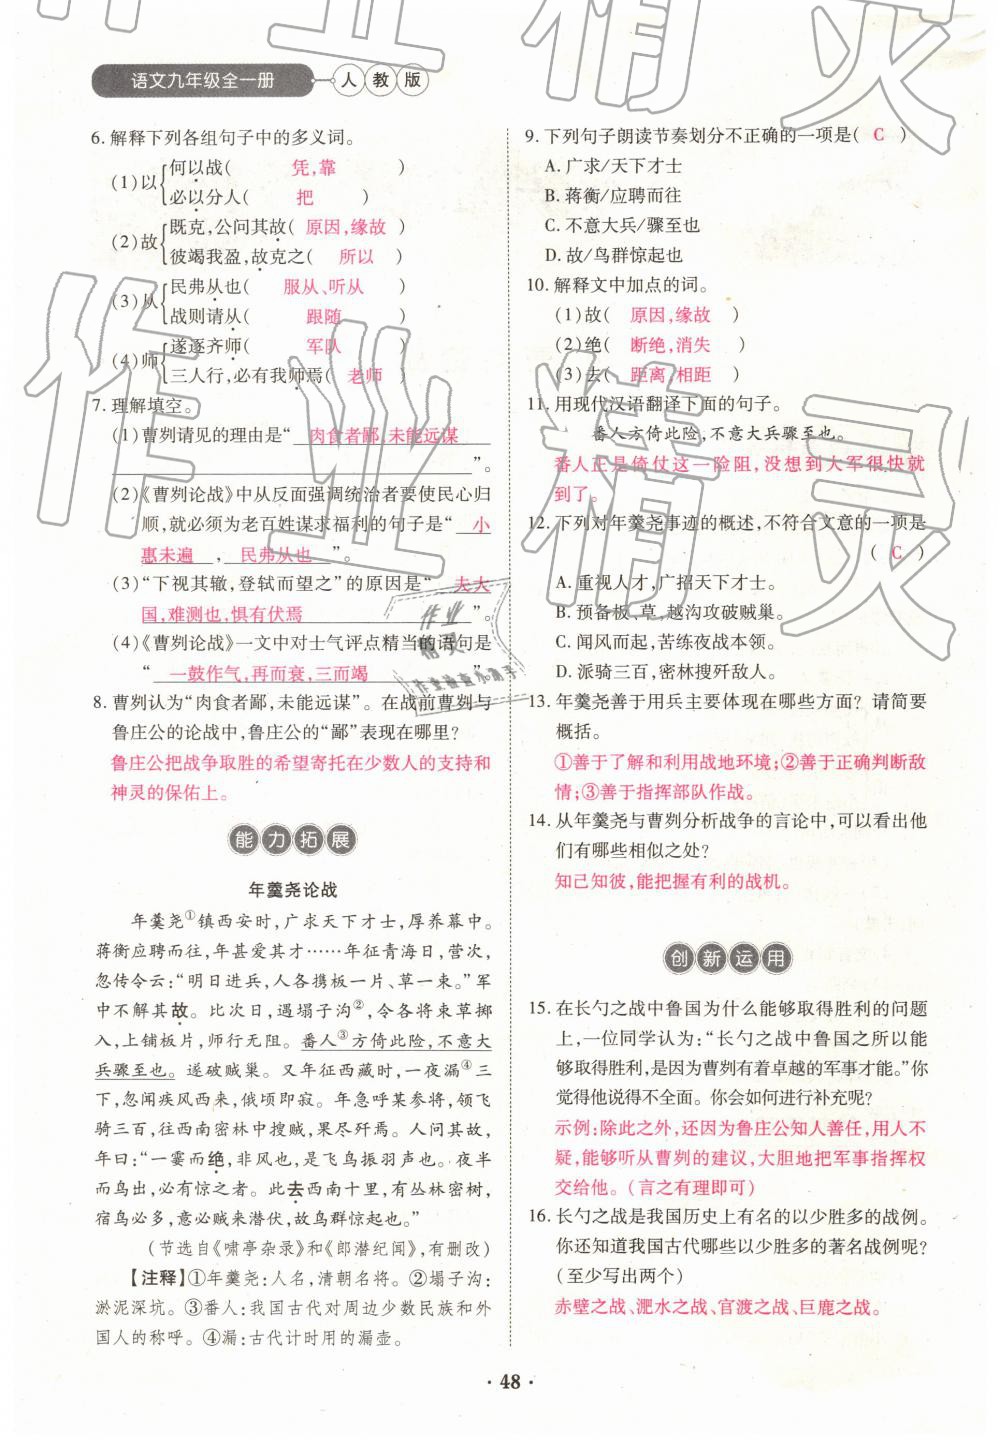 语文九年级全一册 人教版
6. 解释下列各组句子中的多义词。
(1)以
何以战( 凭,靠 )
必以分人( 把 )
(2)故
既克,公问其故( 原因,缘故 )
彼竭我盈,故克之( 所以 )
(3)从
民弗从也( 服从、听从 )
战则请从( 跟随 )
(4)师
遂逐齐师( 军队 )
三人行,必有我师焉( 老师 )
7. 理解填空。
(1)曹刿请见的理由是“ 肉食者鄙,未能远谋
”。
(2)《曹刿论战》中从反面强调统治者要使民心归
顺,就必须为老百姓谋求福利的句子是“ 小
惠未遍 , 民弗从也 ”。
(3)“下视其辙,登轼而望之”的原因是“ 夫大
国,难测也,惧有伏焉 ”。
(4)《曹刿论战》一文中对士气评点精当的语句是
“ 一鼓作气,再而衰,三而竭 ”。
8. 曹刿认为“肉食者鄙,未能远谋”。在战前曹刿与
鲁庄公的论战中,鲁庄公的“鄙”表现在哪里?
鲁庄公把战争取胜的希望寄托在少数人的支持和
神灵的保佑上。
能力拓展
年羹尧论战
年羹尧①镇西安时,广求天下才士,厚养幕中。
蒋衡应聘而往,年甚爱其才……年征青海日,营次,
忽传令云:“明日进兵,人各携板一片、草一束。”军
中不解其故。比次日,遇塌子沟②,令各将束草掷
入,上铺板片,师行无阻。番人③方倚此险,不意大
兵骤至也。遂破贼巢。又年征西藏时,一夜漏④三
下,忽闻疾风西来,俄顷即寂。年急呼某参将,领飞
骑三百,往西南密林中搜贼,果尽歼焉。人问其故,
年曰:“一霎而绝,非风也,是飞鸟振羽声也。夜半
而鸟出,必有惊之者。此去西南十里,有丛林密树,
宿鸟必多,意必贼来潜伏,故鸟群惊起也。”
(节选自《啸亭杂录》和《郎潜纪闻》,有删改)
【注释】①年羹尧:人名,清朝名将。②塌子沟:
淤泥深坑。③番人:我国古代对周边少数民族和外
国人的称呼。④漏:古代计时用的漏壶。
9. 下列句子朗读节奏划分不正确的一项是( C )
A. 广求/天下才士
B. 蒋衡/应聘而往
C. 不意大兵/骤至也
D. 故/鸟群惊起也
10. 解释文中加点的词。
(1)故( 原因,缘故 )
(2)绝( 断绝,消失 )
(3)去( 距离,相距 )
11. 用现代汉语翻译下面的句子。
番人方倚此险,不意大兵骤至也。
番人正是倚仗这一险阻,没想到大军很快就
到了。
12. 下列对年羹尧事迹的概述,不符合文意的一项是
( C )
A. 重视人才,广招天下才士。
B. 预备板、草,越沟攻破贼巢。
C. 闻风而起,苦练夜战本领。
D. 派骑三百,密林搜歼贼敌。
13. 年羹尧善于用兵主要体现在哪些方面?请简要
概括。
①善于了解和利用战地环境;②善于正确判断敌
情;③善于指挥部队作战。
14. 从年羹尧与曹刿分析战争的言论中,可以看出他
们有哪些相似之处?
知己知彼,能把握有利的战机。
创新运用
15. 在长勺之战中鲁国为什么能够取得胜利的问题
上,一位同学认为:“长勺之战中鲁国之所以能
够取得胜利,是因为曹刿有着卓越的军事才能。”你
觉得他说得不全面。你会如何进行补充呢?
示例:除此之外,还因为鲁庄公知人善任,用人不
疑,能够听从曹刿的建议,大胆地把军事指挥权
交给他。(言之有理即可)
16. 长勺之战是我国历史上有名的以少胜多的战例。
你还知道我国古代哪些以少胜多的著名战例呢?
(至少写出两个)
赤壁之战、淝水之战、官渡之战、巨鹿之战。
· 48 ·
作业精灵
作业精灵
作业精灵